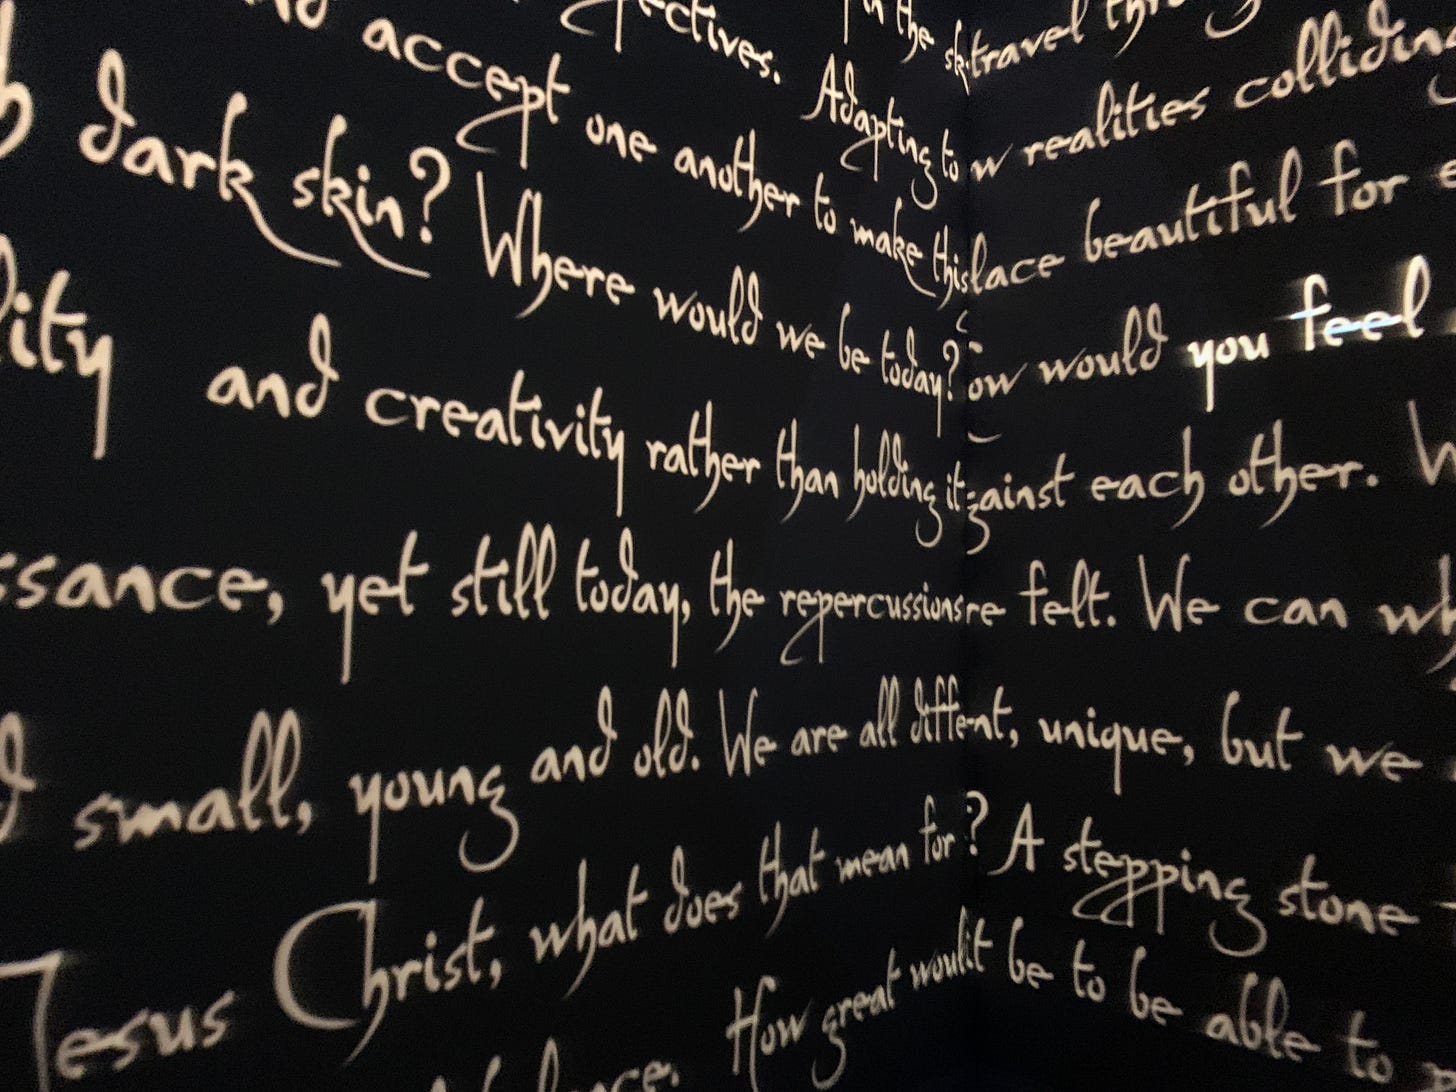 in the sk travel
accept one another to make this lace beautiful for
Adapting to w realities colliding
dark skin? Where would we be today? ow would you feel
and creativity rather than holding it gainst each other.
ssance, yet still today, the repercussions re felt. We can
small, young and old. We are all diffe nt, unique, but we
Jesus Christ, what does that mean for? A stepping stone
How great would it be to be able to